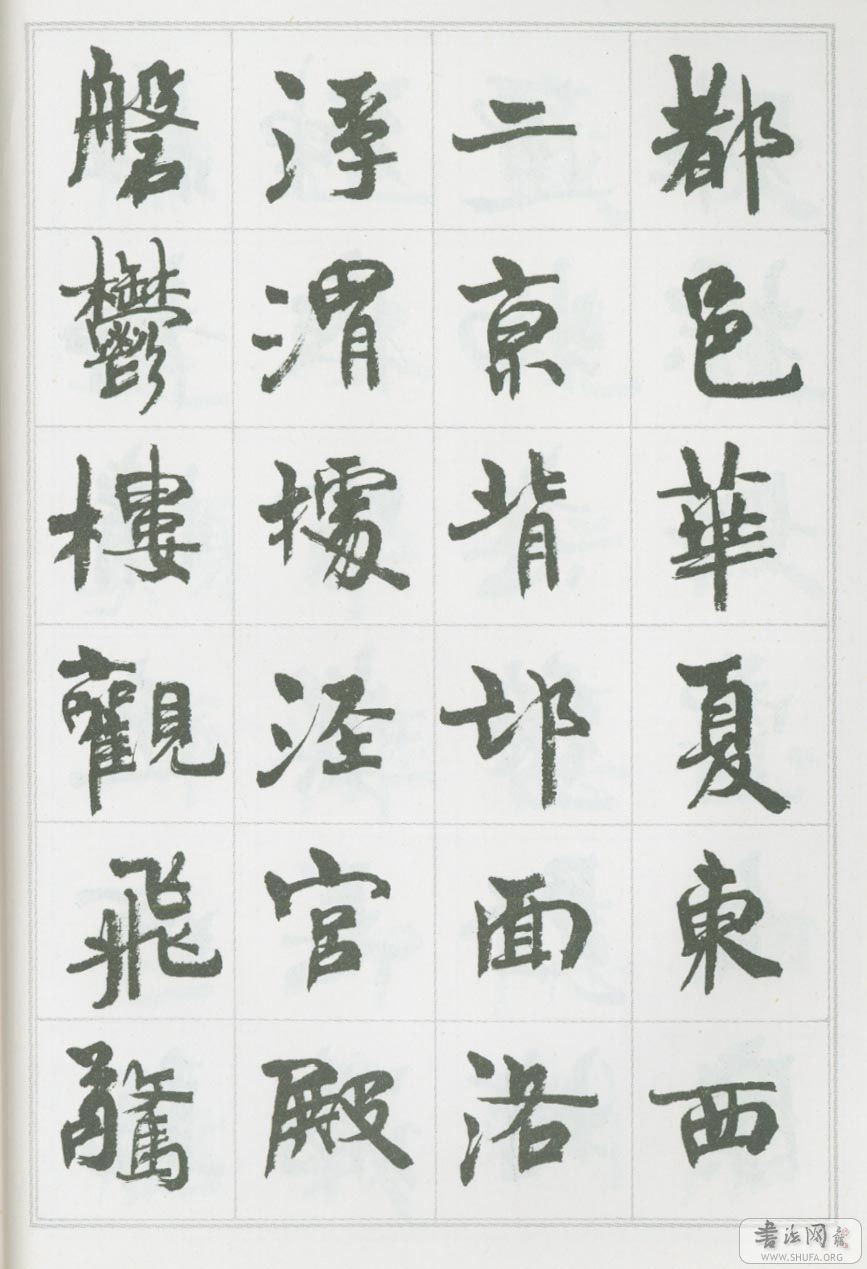 都邑華夏東西
二京背邙面洛
浮渭據涇宮殿
磐鬱樓觀飛驚
書法网
WWW.SHUFA.ORG